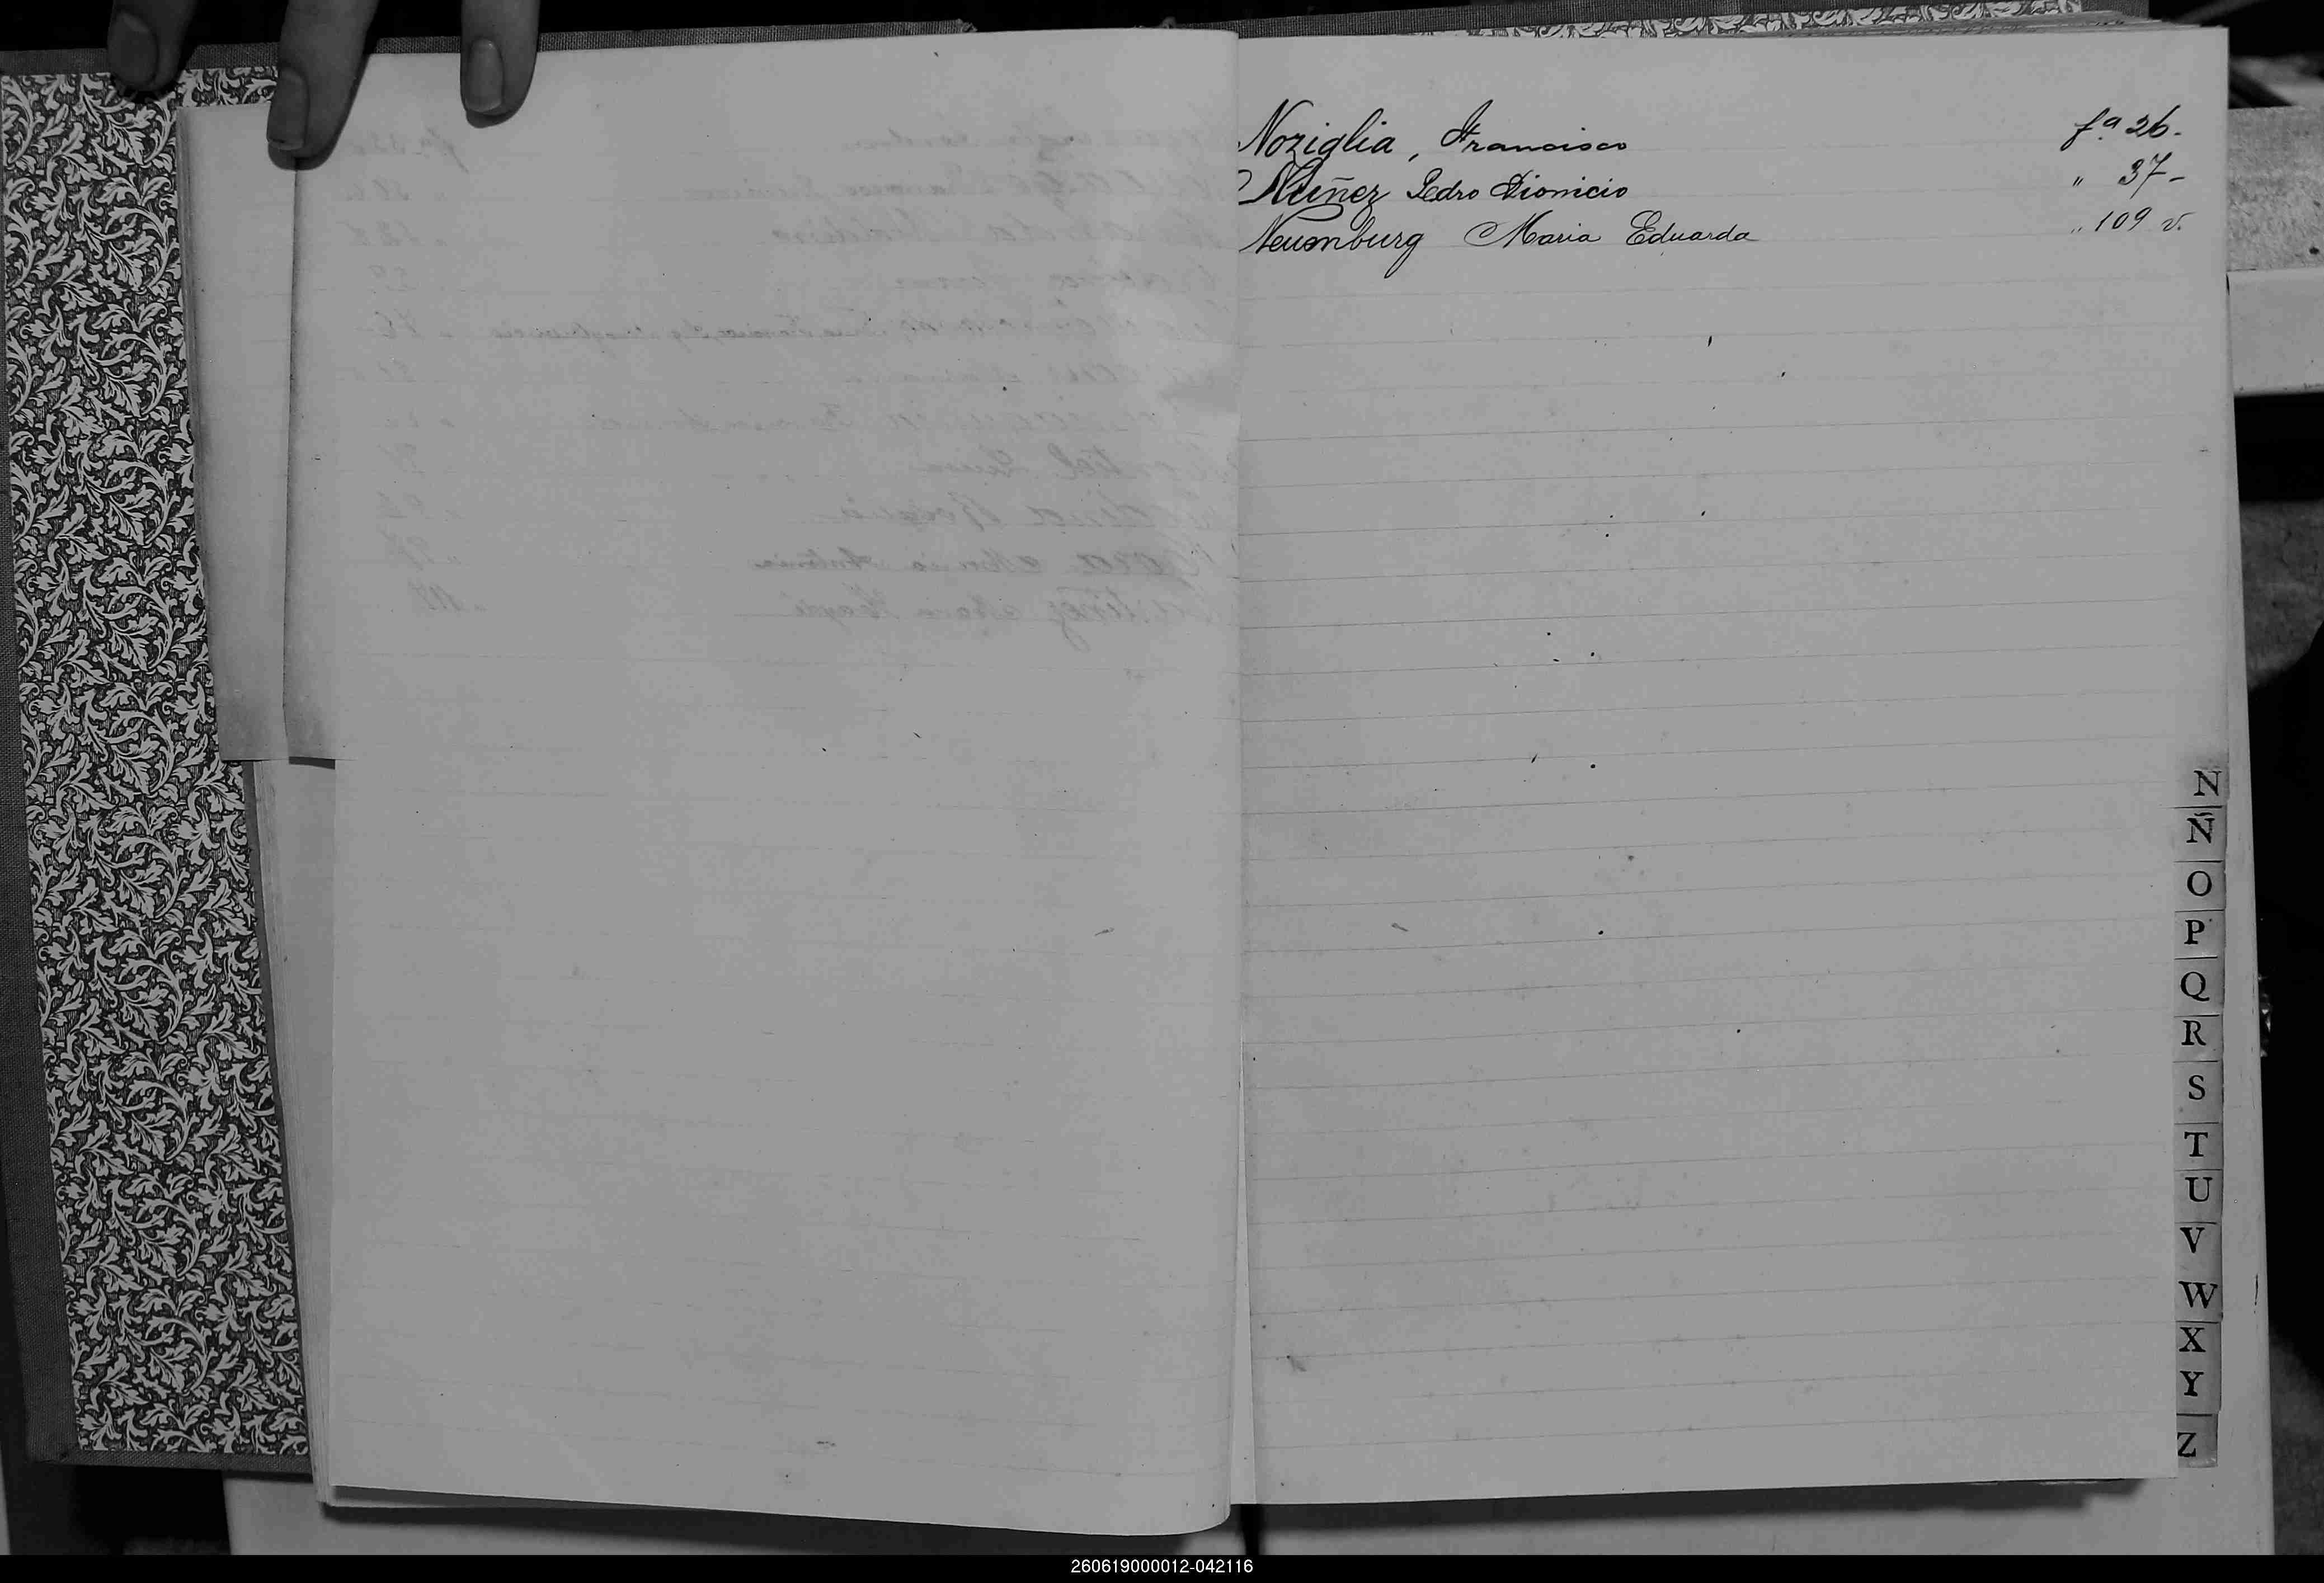 Noziglia, Francisco fª 26.
Nuñez Pedro Dionicio " 37-
Neumburg Maria Eduarda " 109 v.
N
Ñ
O
P
Q
R
S
T
U
V
W
X
Y
Z
260619000012-042116